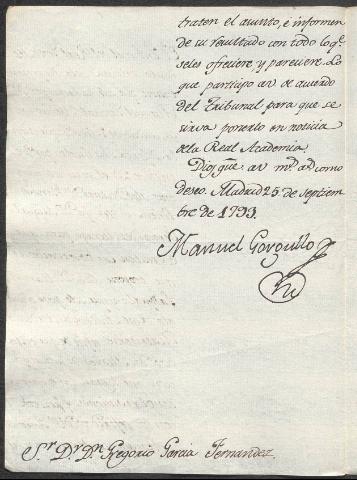 traten el asunto, e informen
de su resultado con todo loq.e
seles ofreciere y pareciere. Lo
que participo a v. s. de acuerdo
del Tribunal para que se
sirva ponerlo en noticia
de la Real Academia.
Dios gue. a v. m.s a.s como
deseo. Madrid 25 de Septiem
bre de 1793.
Manuel Gorquillo
S.r D.r D.n Gregorio Garcia Fernandez.